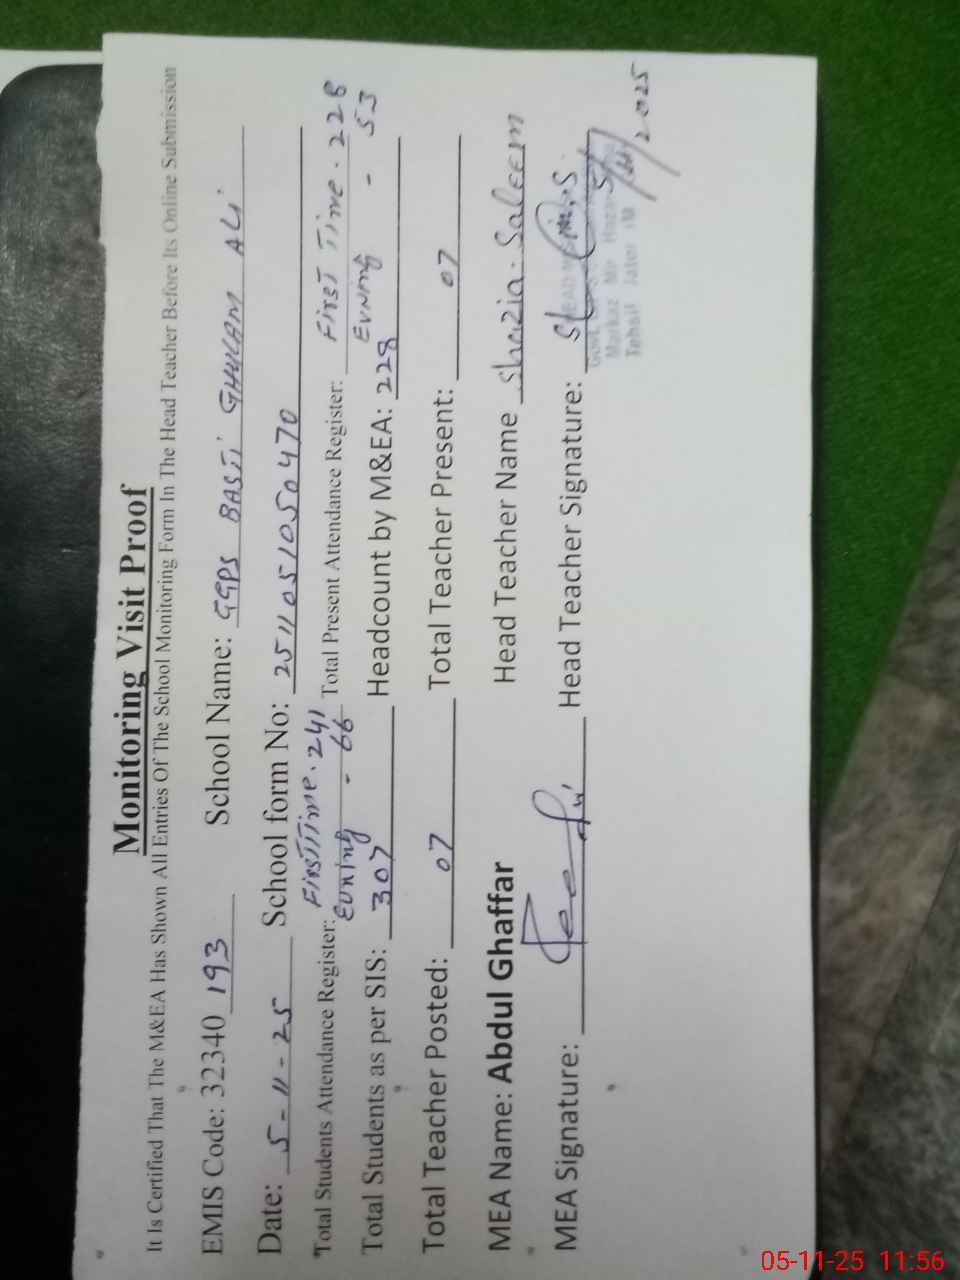 Monitoring Visit Proof
It Is Certified That The M&EA Has Shown All Entries Of The School Monitoring Form In The Head Teacher Before Its Online Submission
EMIS Code: 32340 193 School Name: GGPS BASTI GHULAM ALI
Date: 5-11-25 School form No: 2511051050470
Total Students Attendance Register: FIRST TIME. 241 Total Present Attendance Register: FIRST TIME. 228
EVNING - 66 EVNING - 53
Total Students as per SIS: 307 Headcount by M&EA: 228
Total Teacher Posted: 07 Total Teacher Present: 07
MEA Name: Abdul Ghaffar Head Teacher Name Shazia Saleem
MEA Signature: Head Teacher Signature:
Markaz Mir
Tehsil Jatoi
2025
05-11-25 11:56